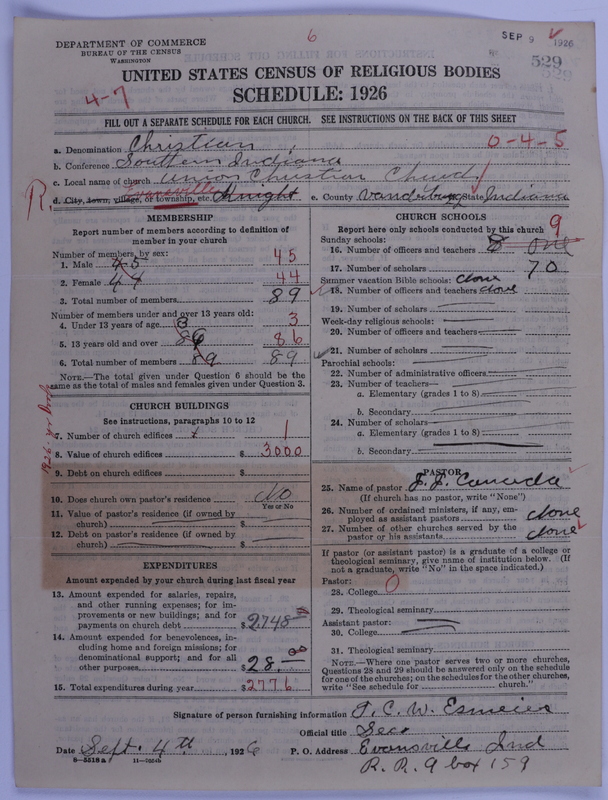 6
DEPARTMENT OF COMMERCE
BUREAU OF THE CENSUS
WASHINGTON
SEP 9 1926
529
UNITED STATES CENSUS OF RELIGIOUS BODIES
4-7
SCHEDULE: 1926
FILL OUT A SEPARATE SCHEDULE FOR EACH CHURCH. SEE INSTRUCTIONS ON THE BACK OF THIS SHEET
a. Denomination Christian 0-4-5
b. Conference Southern Indiana
c. Local name of church Union Christian Church
Evansville
d. City, town, village, or township, etc. Knight e. County Vanderburg State Indiana
MEMBERSHIP
Report number of members according to definition of member in your church
Number of members, by sex:
1. Male 45 45
2. Female 44 44
3. Total number of members 89
Number of members under and over 13 years old:
4. Under 13 years of age 3 3
5. 13 years old and over 86 86
6. Total number of members 89 89
NOTE.—The total given under Question 6 should be the same as the total of males and females given under Question 3.
CHURCH BUILDINGS
See instructions, paragraphs 10 to 12
7. Number of church edifices 1
8. Value of church edifices $ 3000
9. Debt on church edifices $
10. Does church own pastor's residence No
Yes or No
11. Value of pastor's residence (if owned by church) $
12. Debt on pastor's residence (if owned by church) $
EXPENDITURES
Amount expended by your church during last fiscal year
13. Amount expended for salaries, repairs, and other running expenses; for improvements or new buildings; and for payments on church debt $ 2748
14. Amount expended for benevolences, including home and foreign missions; for denominational support; and for all other purposes $ 28 00
15. Total expenditures during year $ 2776
CHURCH SCHOOLS
Report here only schools conducted by this church
Sunday schools:
16. Number of officers and teachers 8 9
17. Number of scholars 70
Summer vacation Bible schools: None
18. Number of officers and teachers None
19. Number of scholars
Week-day religious schools:
20. Number of officers and teachers
21. Number of scholars
Parochial schools:
22. Number of administrative officers
23. Number of teachers—
a. Elementary (grades 1 to 8)
b. Secondary
24. Number of scholars—
a. Elementary (grades 1 to 8)
b. Secondary
PASTOR
25. Name of pastor
(If church has no pastor, write "None")
26. Number of ordained ministers, if any, employed as assistant pastors None
27. Number of other churches served by the pastor or his assistants None
If pastor (or assistant pastor) is a graduate of a college or theological seminary, give name of institution below. (If not a graduate, write "No" in the space indicated.)
Pastor:
28. College 0
29. Theological seminary
Assistant pastor:
30. College
31. Theological seminary
NOTE.—Where one pastor serves two or more churches, Questions 28 and 29 should be answered only on the schedule for one of the churches; on the schedules for the other churches, write "See schedule for church."
Signature of person furnishing information
Official title Sec
Date Sept. 4th, 1926 P. O. Address Evansville Ind
8—5518a 11—7554b
R. R. 9 box 159